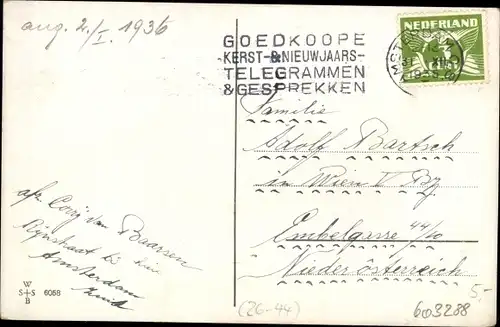 aug. 2./I. 1936
GOEDKOOPE
KERST-&NIEUWJAARS-
TELEGRAMMEN
&GESPREKKEN
NEDERLAND
AMSTERDAM
1935
Familie
Adolf Bartsch
in Wien V Bz
Embelgasse 44/10
Niederösterreich
afz. Corij van Baarsen
Amsterdam
Zuid
W
S+S 6058
B
(26-44)
5,-
603288